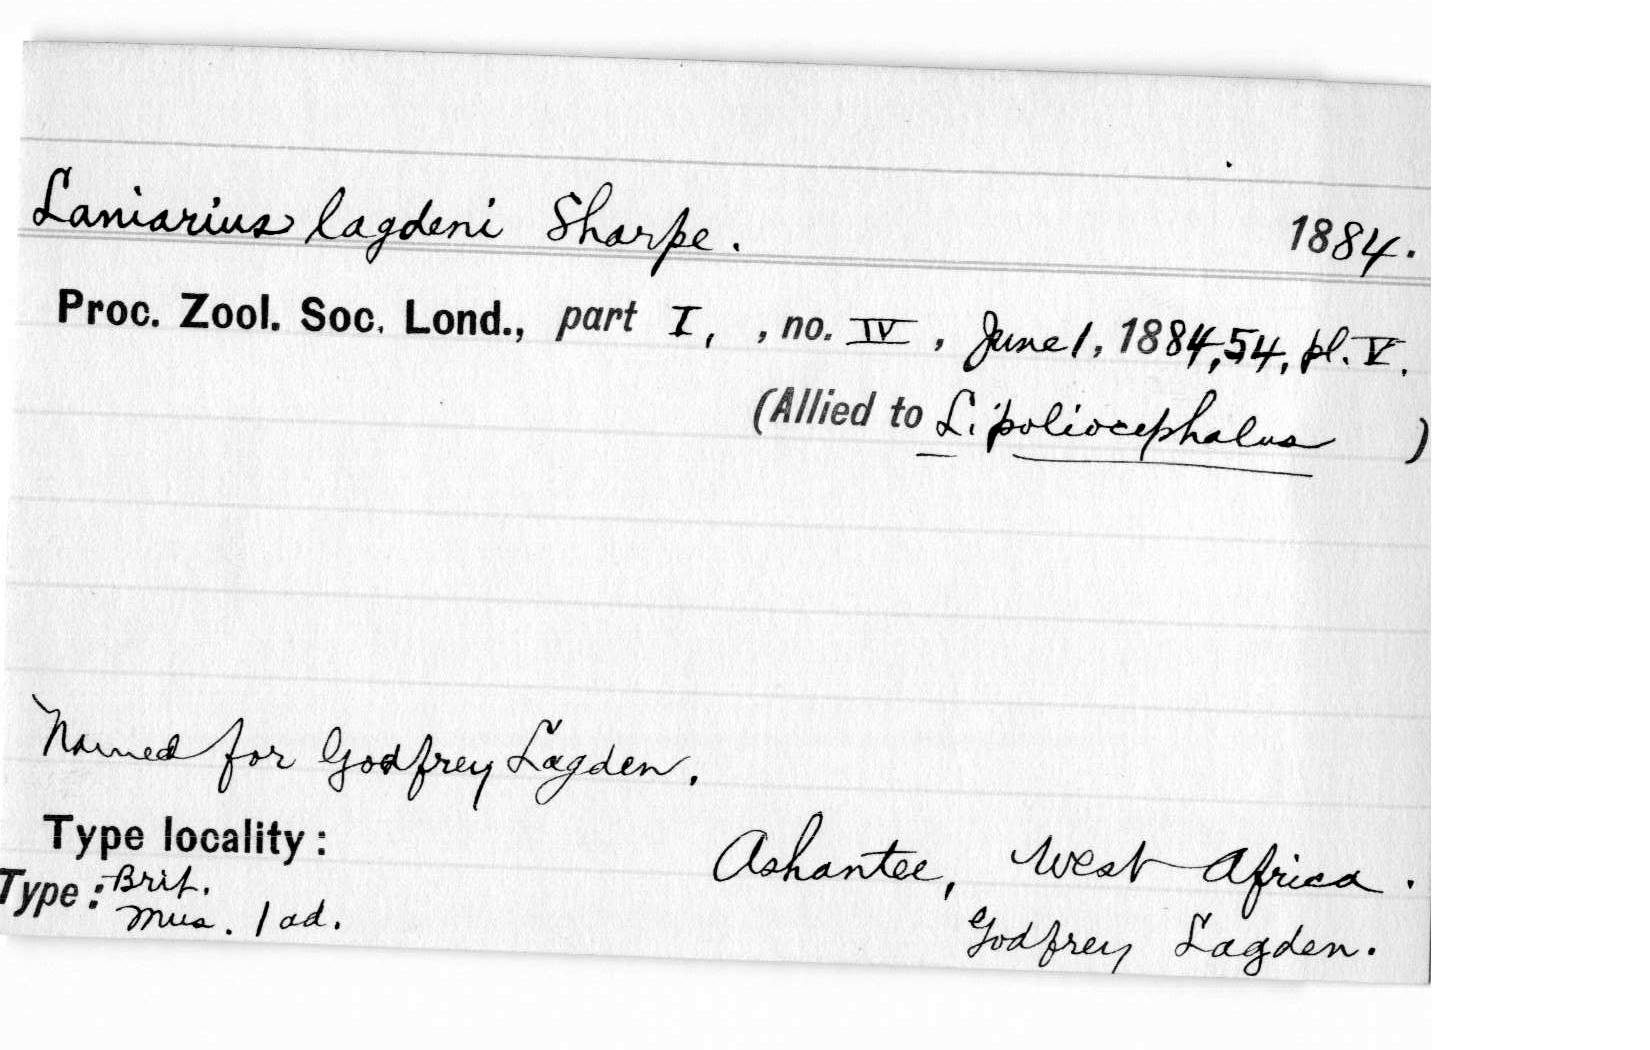 Laniarius lagdeni Sharpe. 1884.
Proc. Zool. Soc. Lond., part I, , no. IV, June 1, 1884, 54, pl. V.
(Allied to L. poliocephalus )
Named for Godfrey Lagden.
Type locality:
Ashantee, West Africa.
Type: Brit.
Mus. 1 ad.
Godfrey Lagden.